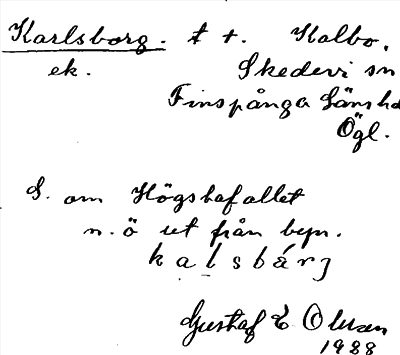 Karlsborg. t +. Kalbo,
ek. Skedevi sn
Finspånga länshd
Ögl.
S. om Högshafallet
n. ö ut från byn.
kalsbárg
Gustaf E. Olsson
1928